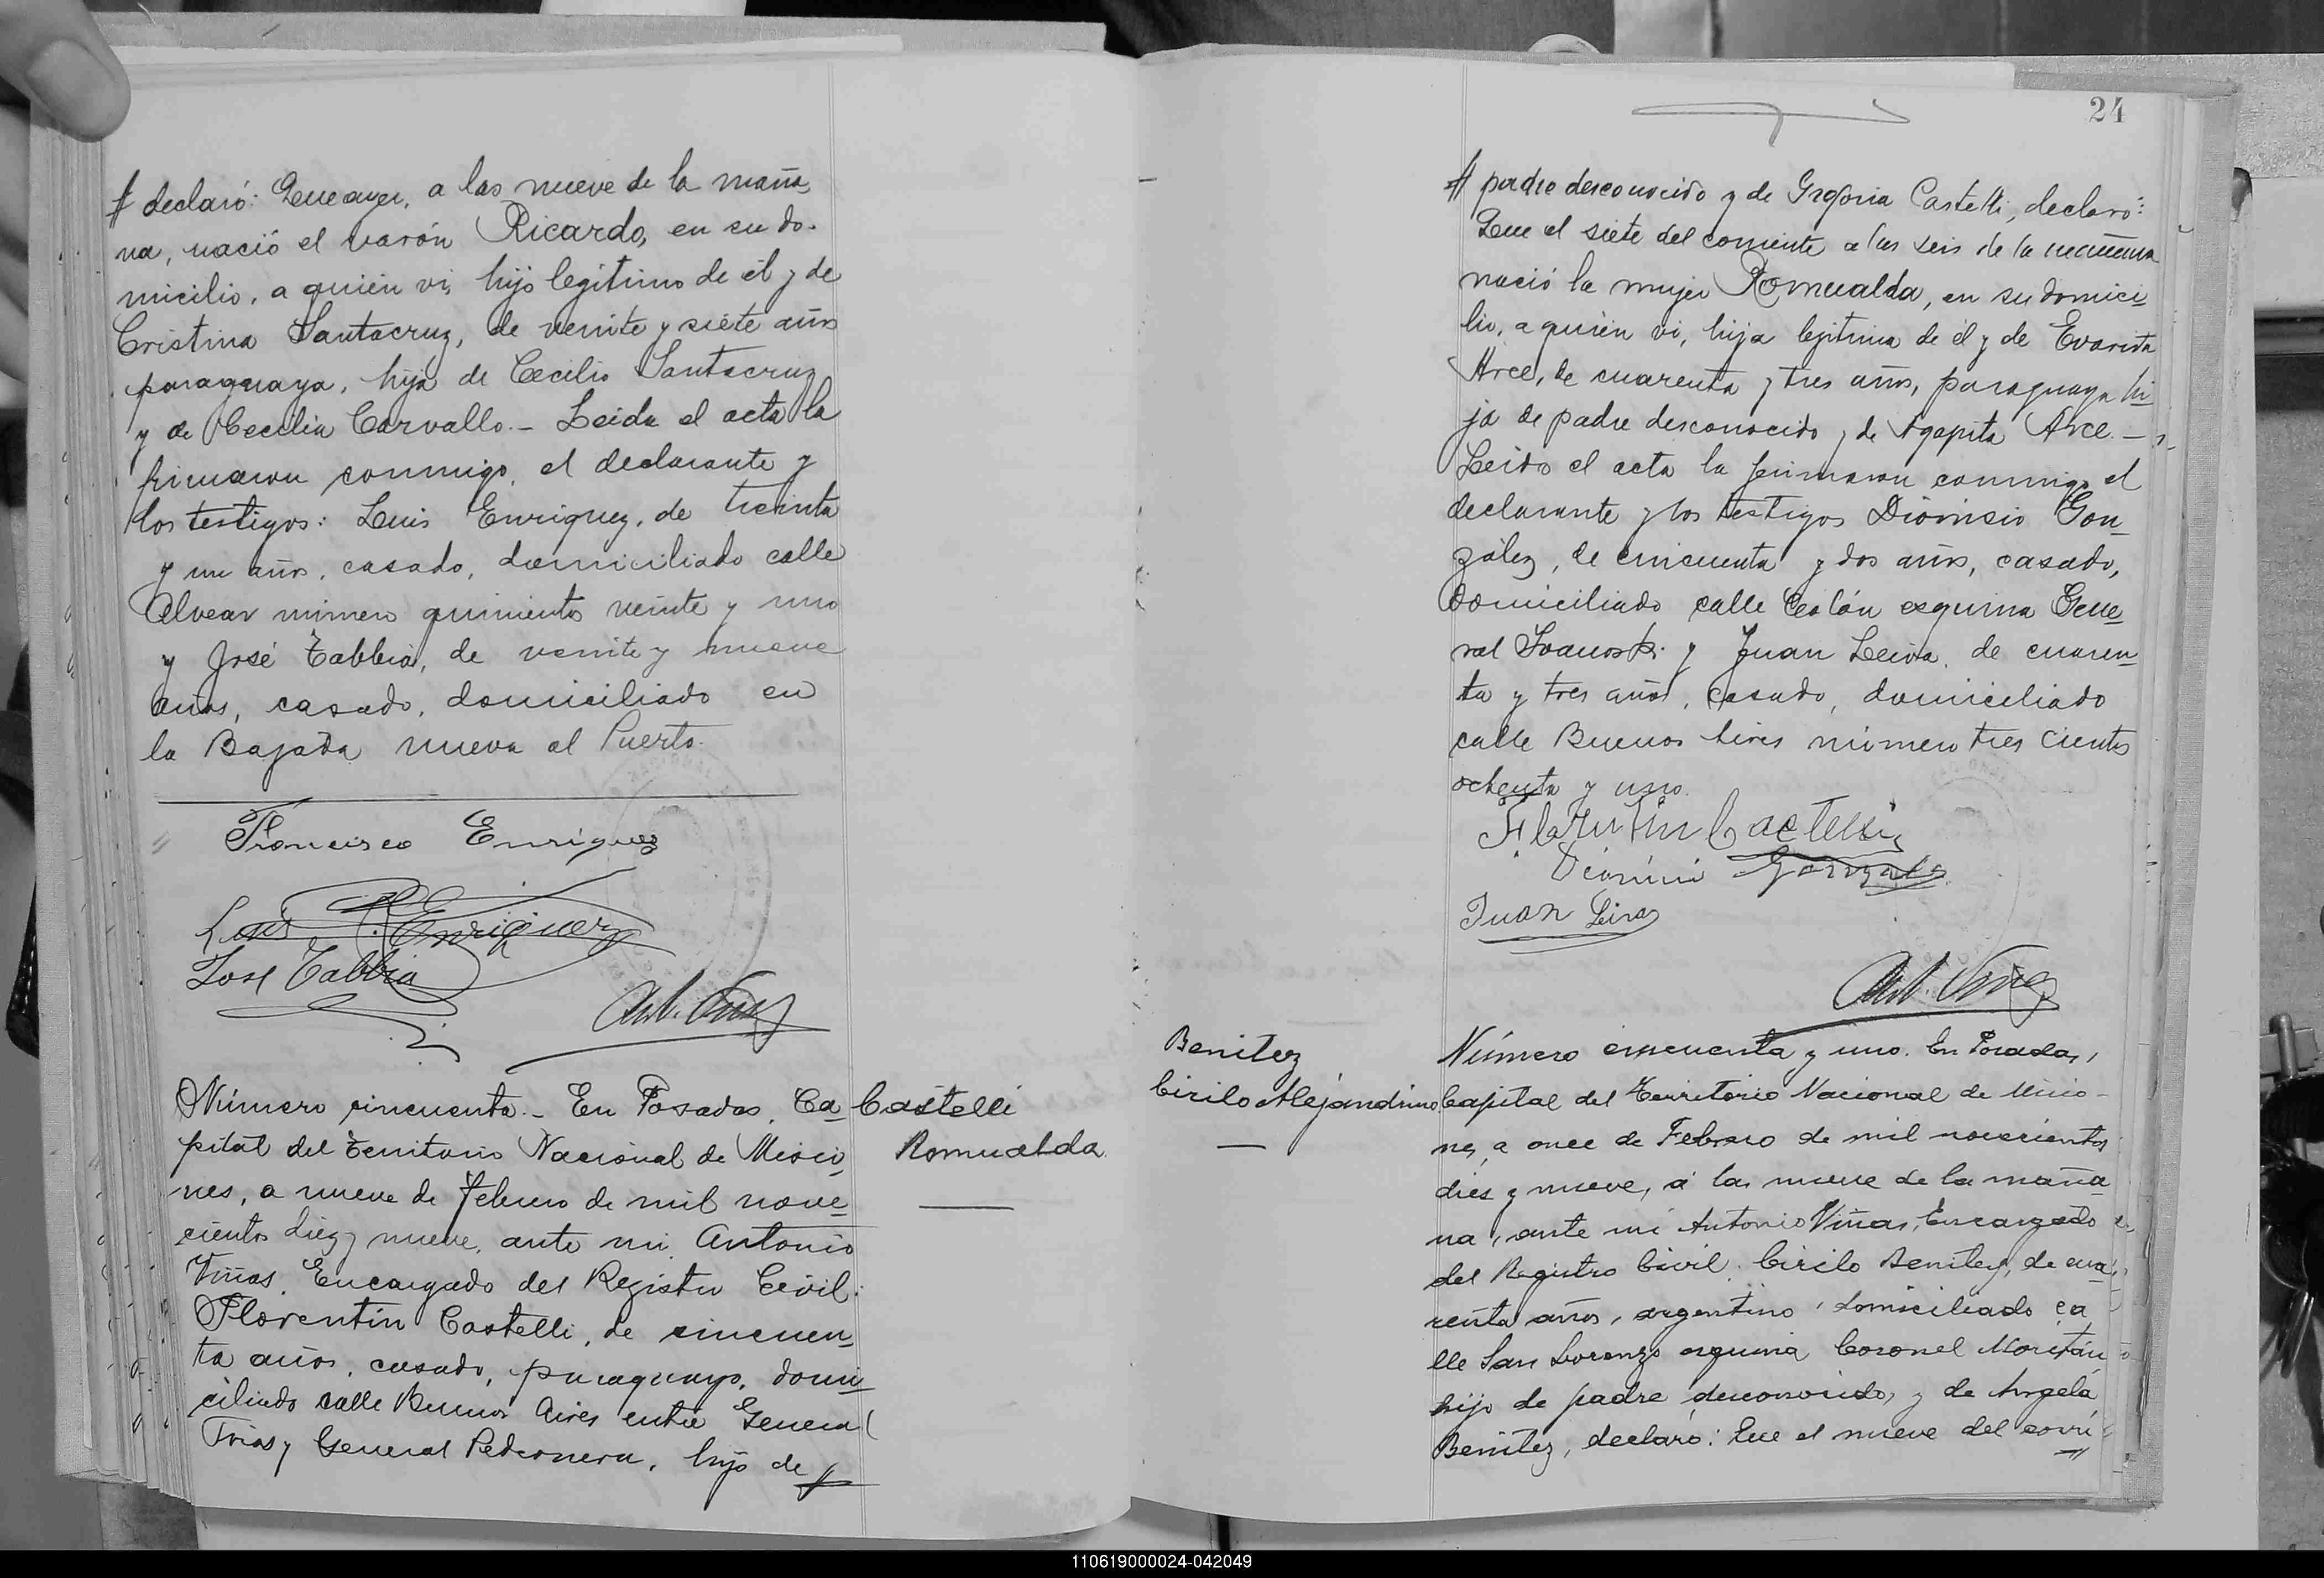 declaró: Que ayer, a las nueve de la maña
na, nació el varón Ricardo, en su do-
micilio, a quien vi, hijo legítimo de él y de
Cristina Santacruz, de veinte y siete años
paraguaya, hija de Cecilio Santacruz
y de Cecilia Carvallo.- Leida el acta la
firmaron conmigo, el declarante y
los testigos: Luis Enriquez, de treinta
y un años, casado, domiciliado calle
Alvear número quinientos veinte y uno
y José Tabbia, de veinte y nueve
años, casado, domiciliado en
la Bajada nueva al Puerto.
Francisco Enriquez
Luis Enriquez
Jose Tabbia
Ant. Viñas
Número cincuenta.- En Posadas, Ca
pital del Territorio Nacional de Misio
nes, a nueve de febrero de mil nove
cientos diez y nueve, ante mi Antonio
Viñas, Encargado del Registro Civil:
Florentin Castelli, de cincuen
ta años, casado, paraguayo, domi
ciliado calle Buenos Aires entre General
Frias y General Pedernera, hijo de
Castelli
Romualda
24
padre desconocido y de Gregoria Castelli, declaró:
Que el siete del corriente a las seis de la mañana
nació la mujer Romualda, en su domici
lio, a quien vi, hija legitima de él y de Evarista
Arce, de cuarenta y tres años, paraguaya hi
ja de padre desconocido y de Agapita Arce.-
Leido el acta la firmaron conmigo el
declarante y los testigos Dionisio Gon
zález, de cincuenta y dos años, casado,
domiciliado calle Colón esquina Gene
ral Ivanoski y Juan Leiva, de cuaren
ta y tres años, casado, domiciliado
calle Buenos Aires número tres cientos
ochenta y uno.
Florentin Castelli
Dionisio Gonzalez
Juan Leiva
Ant. Viñas
Benitez
Cirilo Alejandrino
Número cincuenta y uno. En Posadas,
Capital del Territorio Nacional de Misio-
nes, a once de Febrero de mil novecientos
diés y nueve, á las nueve de la maña
na, ante mi Antonio Viñas, Encargado
del Registro Civil: Cirilo Benitez, de cua
renta años, argentino, domiciliado ca
lle San Lorenzo esquina Coronel Moritán
hijo de padre desconocido, y de Angela
Benitez, declaró: Que el nueve del corri
110619000024-042049